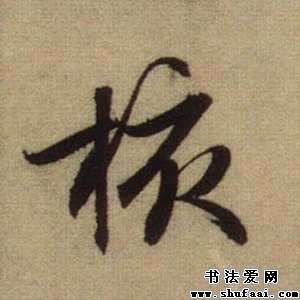 核
书法爱网
www.shufaai.com